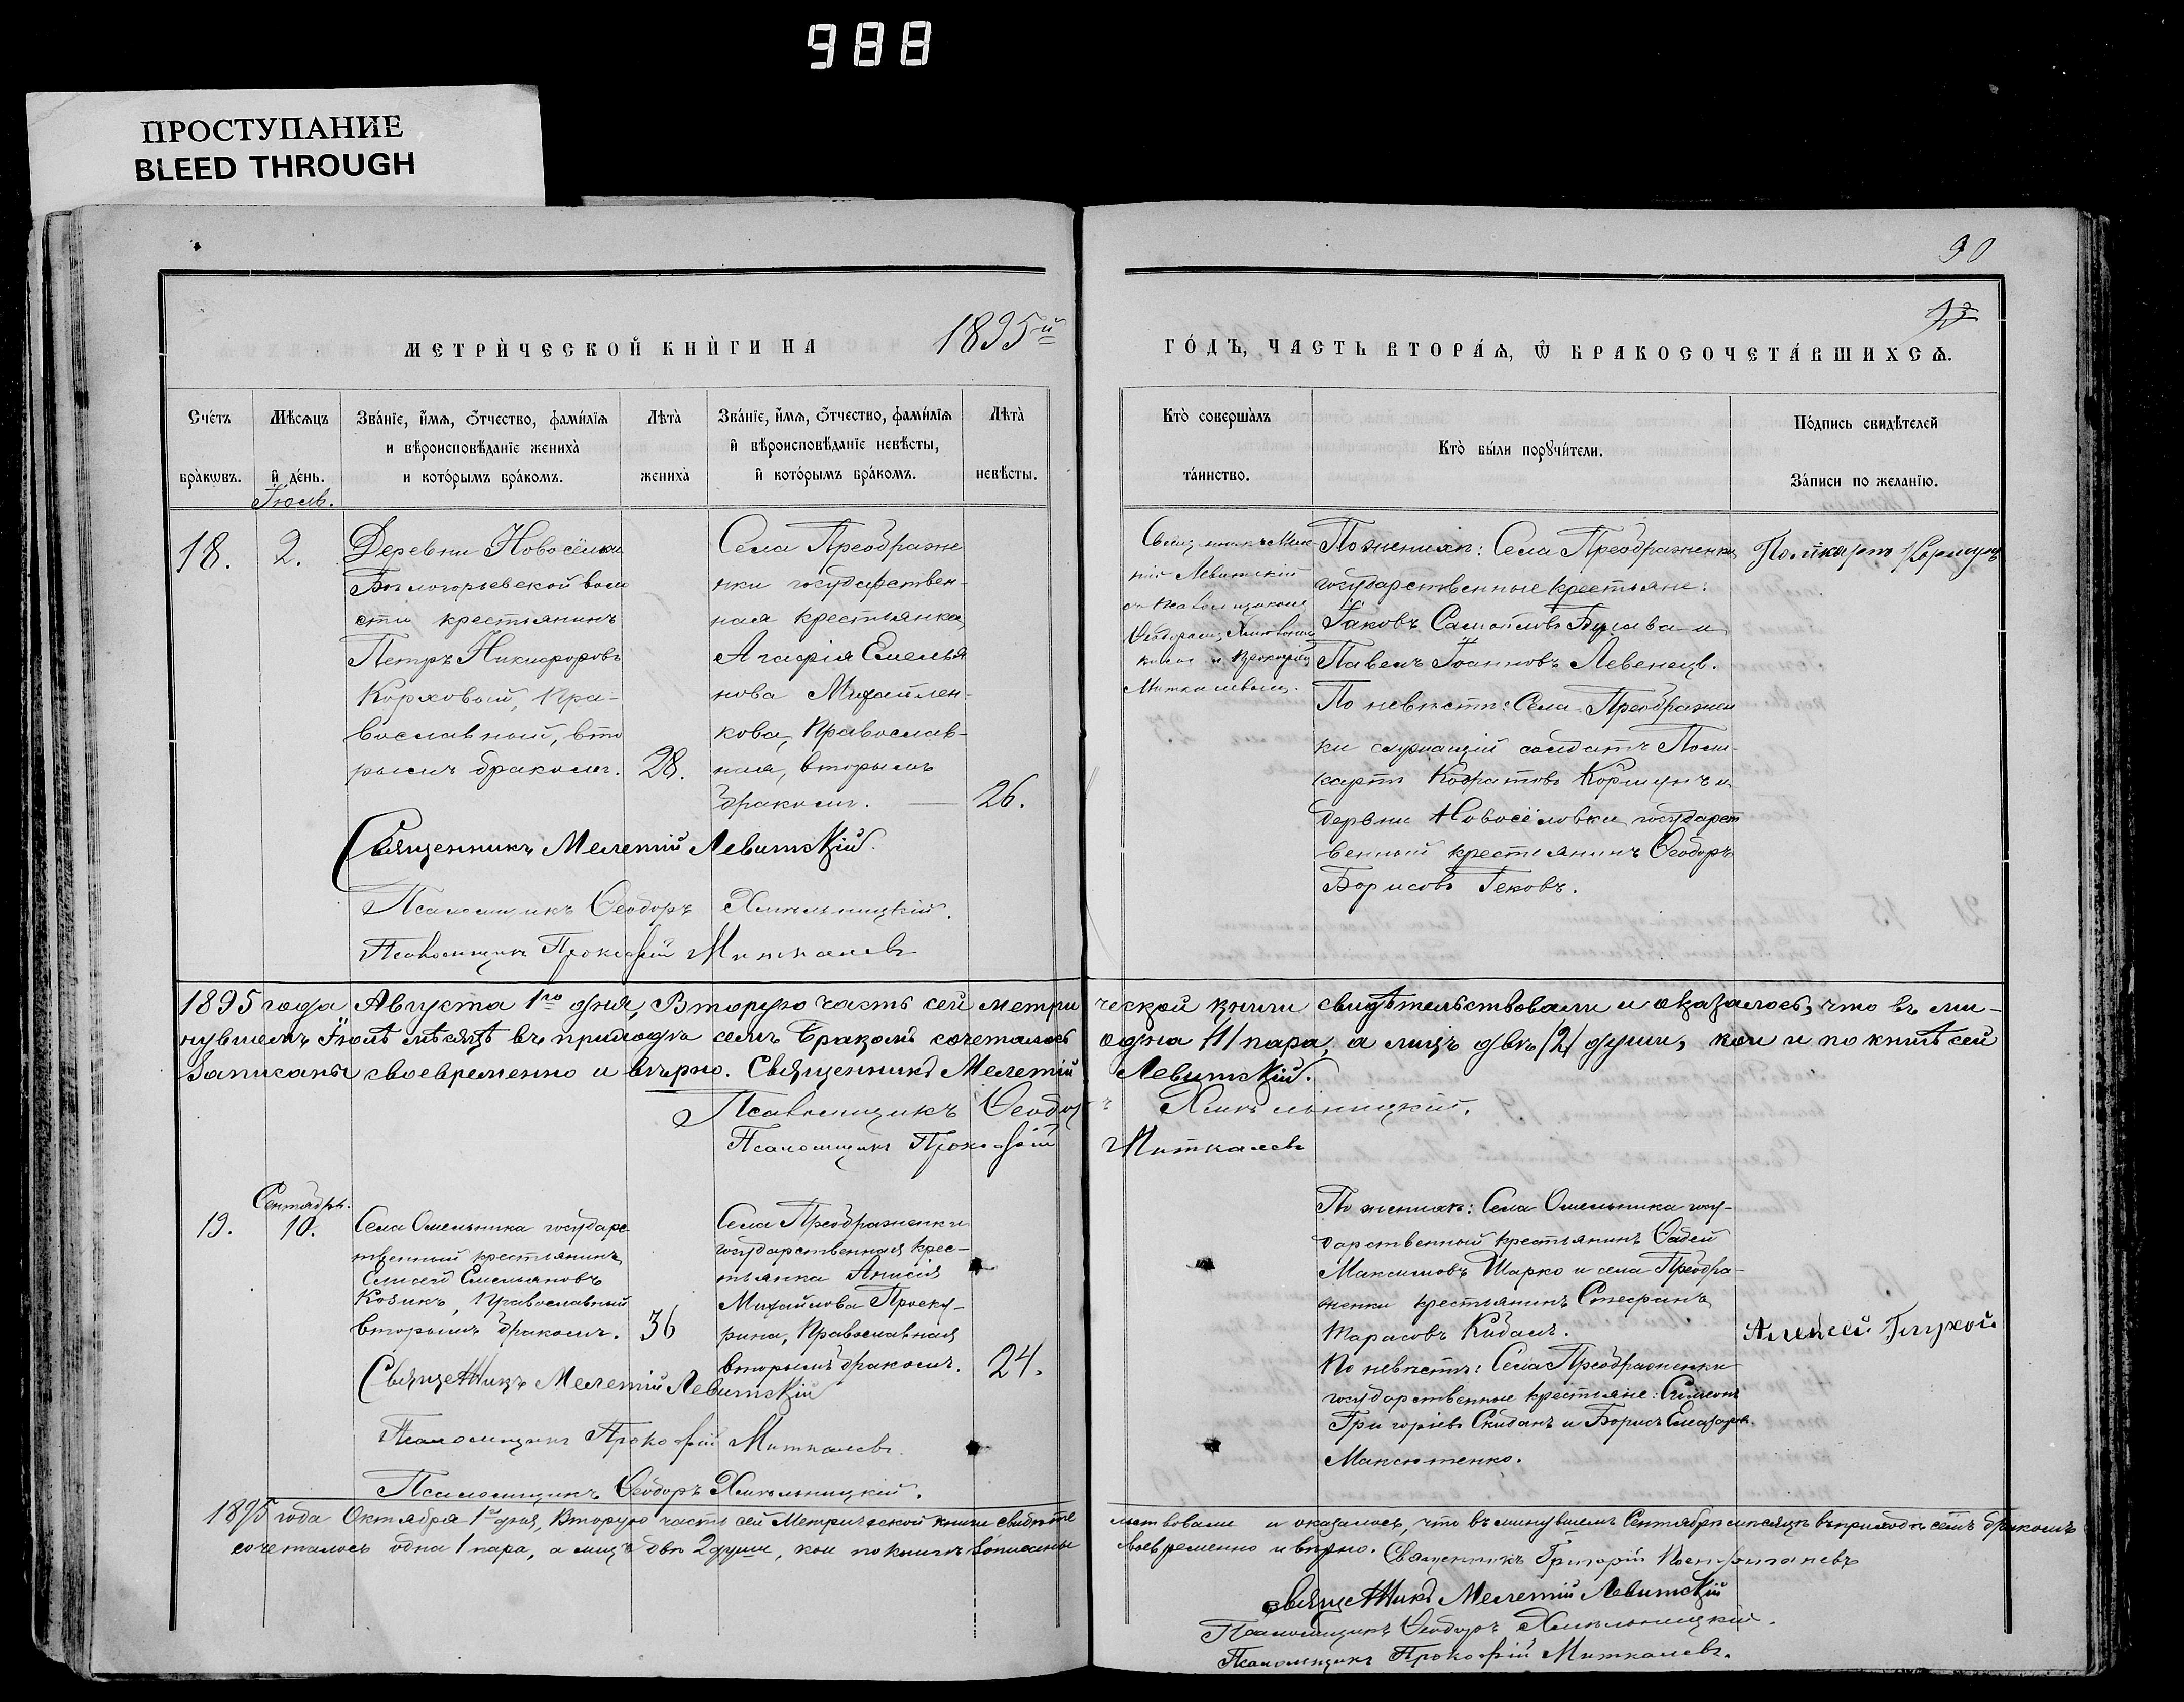 988
ПРОСТУПАНИЕ
BLEED THROUGH
90
13
МЕТРИ́ЧЕСКОЙ КНИ́ГИ НА 1895й
ГО́ДЪ, ЧАСТЬ ВТОРА́Ѧ, Ѽ БРАКОСОЧЕТА́ВШИХСѦ.
Сче́тъ бра́кѡвъ.
Мѣ́сѧцъ и҆ де́нь.
Зва́нїе, и҆́мѧ, ѻ҆́тчество, фами́лїѧ
и вѣроисповѣ́данїе жениха̀
и кото́рымъ бра́комъ.
Лѣта̀ жениха̀
Зва́нїе, и҆́мѧ, ѻ҆́тчество, фами́лїѧ
и҆ вѣроисповѣ́данїе невѣ́сты,
и҆ кото́рымъ бра́комъ.
Лѣта̀ невѣ́сты.
Кто̀ соверша̀лъ та́инство.
Кто̀ бы́ли порꙋчи́тели.
По́дпись свидѣ́телей
За́писи по жела́нїю.
Іюль.
18.
2.
Деревни Новосёловки
Бѣлогорьевской воло
сти крестьянинъ
Петръ Никифоровъ
Коржовый, пра-
вославный, вто
рымъ бракомъ.
28.
Села Преображе
нки государствен-
ная крестьянка
Агафія Емелья
нова Михайлен-
кова, Православ-
ная, вторымъ
бракомъ.
26.
Священникъ Меле-
тій Левитскій
съ псаломщиками
Ѳеодоромъ Хмѣльниц
кимъ и Прокофіемъ
Миткалевымъ.
По женихѣ: Села Преображенки
государственные крестьяне:
Іаковъ Самойловъ Булава и
Павелъ Іоанновъ Левенецъ.
По невѣстѣ: Села Преображен
ки служащій солдатъ Поли-
карпъ Кодратовъ Коршунъ и
дервни Новосёловки государст
венный крестьянинъ Ѳеодоръ
Борисовъ Гековъ.
Поликарпъ Коршунъ
Священникъ Мелетій Левитскій.
Псаломщикъ Ѳеодоръ Хмѣльницкій.
Псаломщикъ Прокофій Миткалевъ
1895 года Августа 1го дня, Вторую часть сей метри ческой книги свидѣтельствовали и оказалось, что въ ми-
нувшемъ Іюлѣ мѣсяцѣ въ приходѣ семъ бракомъ сочеталось одна /1/ пара, а лицъ двѣ /2/ души, кои и по книгѣ сей
записаны своевременно и вѣрно. Священникъ Мелетій Левитскій.
Псаломщикъ Ѳеодоръ Хмѣльницкій.
Псаломщикъ Прокофій Миткалевъ
19.
Сентябрь.
10.
Села Омельника государс
твенный крестьянинъ
Елисей Емельяновъ
Козикъ, Православный
вторымъ бракомъ.
36
Села Преображенки
государственная крес-
тьянка Анисія
Михайлова Проску-
рина, Православная
вторымъ бракомъ.
24.
По женихѣ: Села Омельника госу-
дарственный крестьянинъ Ѳадей
Максимовъ Шарко и села Преобра-
женки крестьянинъ Стефанъ
Тарасовъ Кидалъ.
По невѣстѣ: Села Преображенки
государственные крестьяне: Симеонъ
Григоріевъ Скиданъ и Борисъ Елазаровъ
Максютенко.
Алексей Глухой
Священникъ Мелетій Левитскій
Псаломщикъ Прокофій Миткалевъ.
Псаломщикъ Ѳеодоръ Хмѣльницкій.
1895 года Октября 1го дня, Вторую часть сей Метрической книги свидѣте льствовали и оказалось, что въ минувшемъ Сентябрѣ мѣсяцѣ въ приходѣ семъ бракомъ
сочеталось одна 1 пара, а лицъ двѣ 2 души, кои по книгѣ записаны своевременно и вѣрно. Священникъ Григорій
Священникъ Мелетій Левитскій
Псаломщикъ Ѳеодоръ Хмѣльницкій.
Псаломщикъ Прокофій Миткалевъ.